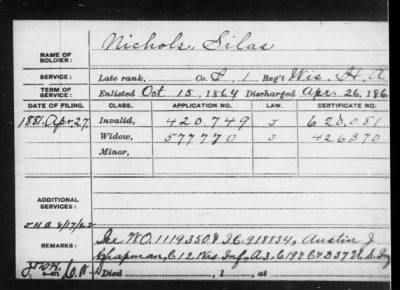 NAME OF SOLDIER: Nichols, Silas
SERVICE: Late rank, Co. I, 1 Reg't Wis. H. A
TERM OF SERVICE: Enlisted Oct 15, 1864 Discharged Apr. 26, 186
DATE OF FILING. CLASS. APPLICATION NO. LAW. CERTIFICATE NO.
1881. Apr. 27. Invalid, 420,749 J 628,081
Widow, 577770 J 426370
Minor,
ADDITIONAL SERVICES:
REMARKS: See WO. 1119350 & 918834, Austin J
Chapman, C 12 Wis. Inf, A 3, C 19
Died , 1 , at